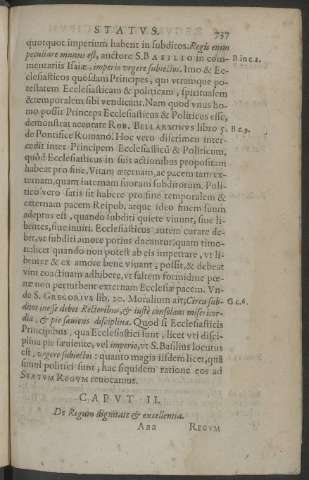 STATVS. 737
quotquot imperium habent in subditos. Regis enim
peculiare munus est, auctore S. BASILIO in com- B in c. 2.
mentariis Isaiæ, imperio regere subiectos. Imo & Ec-
clesiasticos quosdam Principes, qui vtromque po-
testatem Ecclesiasticam & politicam, spiritualem
& temporalem sibi vendicant. Nam quod vnus ho-
mo possit Princeps Ecclesiasticus & Politicus esse,
demonstrat accurate ROB. BELLARMINVS libro 5. B c. 9.
de Pontifice Romano. Hoc vero discrimen inter-
cedit inter Principem Ecclesiasticū & Politicum,
quòd Ecclesiasticus in suis actionibus propositam
habeat pro fine, Vitam æternam, ac pacem tam ex-
ternam, quam internam suorum subditorum. Poli-
tico vero satis sit habere pro fine temporalem &
externam pacem Reipub. atque ideo finem suum
adeptus est, quando subditi quiete viuunt, siue li-
bentes, siue inuiti. Ecclesiasticus autem curare de-
bet, vt subditi amore potius ducantur, quam timo-
re: licet quando non potest ab eis impetrare, vt li-
benter & ex amore bene viuant, possit, & debeat
vim coactiuam adhibere, vt saltem formidine pœ-
næ non perturbent externam Ecclesiæ pacem. Vn-
de S. GREGORIVS lib. 20. Moralium ait; Circa sub- G c. 6.
ditos inesse debet Rectoribus, & iustè consolans misericor-
dia, & pie sæuiens disciplina. Quod si Ecclesiasticis
Principibus, qua Ecclesiastici sunt, licet vti disci-
plina pie sæuiente, vel imperio, vt S. Basilius locutus
est, regere subiectos: quanto magis iisdem licet, quà
simul politici sunt, hac siquidem ratione eos ad
STATVM REGVM reuocamus.
CAPVT II.
De Regum dignitate & excellentia.
Aaa REGVM